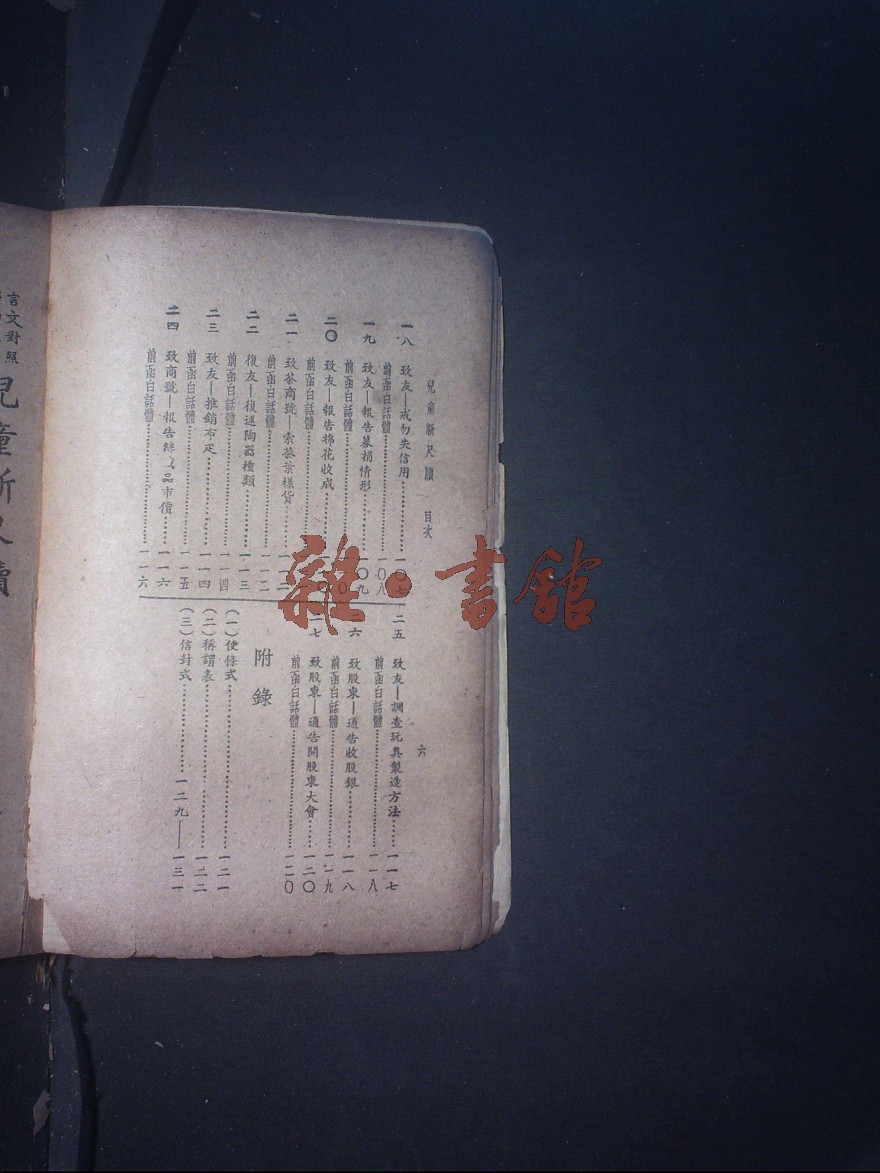 兒童新尺牘 目次 六
一八 致友—戒勿失信用……一〇七
前函白話體……一〇八
一九 致友—報告募捐情形……一〇九
前函白話體
二〇 致友—報告棉花收成
前函白話體
二一 致茶商號—索茶葉樣貨……一一二
前函白話體……一一二
二二 復友—復運陶器種類……一一三
前函白話體……一一四
二三 致友—推銷布疋……一一四
前函白話體……一一五
二四 致商號—報告 品市價……一一六
前函白話體……一一六
二五 致友—調查玩具製造方法……一一七
前函白話體……一一八
六 致股東—通告收股銀……一一八
前函白話體……一一九
一七 致股東—通告開股東大會……一二〇
前函白話體……一二〇
附錄
(一)便條式……一二一
(二)稱謂表……一二二
(三)信封式……一二九——一三一
言文對照
兒童新尺牘
雜·書館